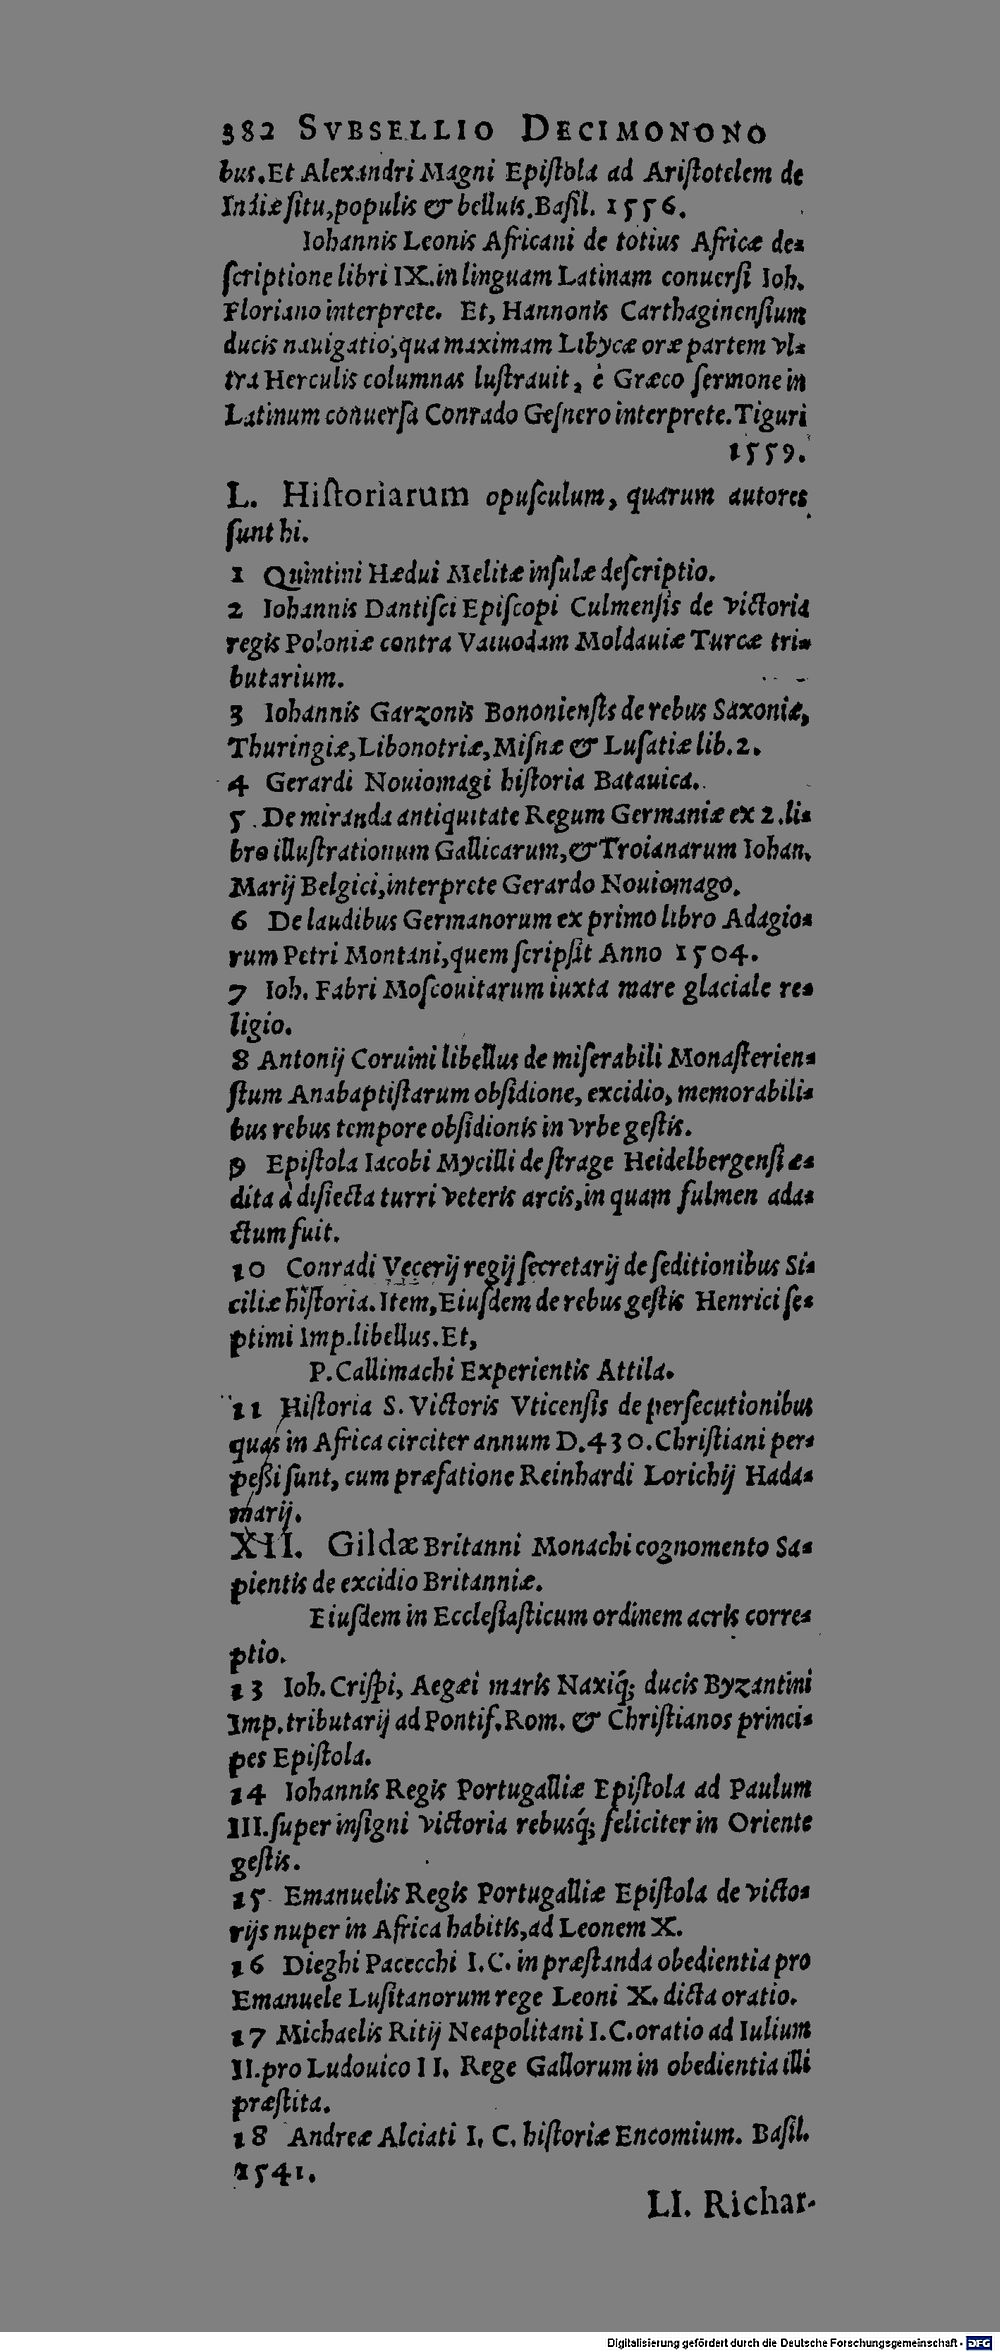 382 SVBSELLIO DECIMONONO
bus. Et Alexandri Magni Epiſtola ad Ariſtotelem de
Indiæ ſitu, populis & belluis. Baſil. 1556.
Iohannis Leonis Africani de totius Africæ de-
ſcriptione libri IX. in linguam Latinam conuerſi Ioh.
Floriano interprete. Et, Hannonis Carthaginenſium
ducis nauigatio, qua maximam Libycæ oræ partem vl-
tra Herculis columnas luſtrauit, è Græco ſermone in
Latinum conuerſa Conrado Geſnero interprete. Tiguri
1559.
L. Hiſtoriarum opuſculum, quarum autores
ſunt hi.
1 Quintini Hædui Melitæ inſulæ deſcriptio.
2 Iohannis Dantiſci Epiſcopi Culmenſis de victoria
regis Poloniæ contra Vaiuodam Moldauiæ Turcæ tri-
butarium.
3 Iohannis Garzonis Bononienſis de rebus Saxoniæ,
Thuringiæ, Libonotriæ, Miſnæ & Luſatiæ lib. 2.
4 Gerardi Nouiomagi hiſtoria Batauica.
5 De miranda antiquitate Regum Germaniæ ex 2. li-
bro illuſtrationum Gallicarum, & Troianarum Iohan.
Marij Belgici, interprete Gerardo Nouiomago.
6 De laudibus Germanorum ex primo libro Adagio-
rum Petri Montani, quem ſcripſit Anno 1504.
7 Ioh. Fabri Moſcouitarum iuxta mare glaciale re-
ligio.
8 Antonij Coruini libellus de miſerabili Monaſterien-
ſium Anabaptiſtarum obſidione, excidio, memorabili-
bus rebus tempore obſidionis in vrbe geſtis.
9 Epiſtola Iacobi Mycilli de ſtrage Heidelbergenſi æ-
dita à diſiecta turri veteris arcis, in quam fulmen ada-
ctum fuit.
10 Conradi Vecerij regij ſecretarij de ſeditionibus Si-
ciliæ hiſtoria. Item, Eiuſdem de rebus geſtis Henrici ſe-
ptimi Imp. libellus. Et,
P. Callimachi Experientis Attila.
11 Hiſtoria S. Victoris Vticenſis de perſecutionibus
quas in Africa circiter annum D. 430. Chriſtiani per-
peßi ſunt, cum præfatione Reinhardi Lorichij Hada-
marij.
XII. Gildæ Britanni Monachi cognomento Sa-
pientis de excidio Britanniæ.
Eiuſdem in Eccleſiaſticum ordinem acris corre-
ptio.
13 Ioh. Criſpi, Aegæi maris Naxiq́; ducis Byzantini
Imp. tributarij ad Pontif. Rom. & Chriſtianos princi-
pes Epiſtola.
14 Iohannis Regis Portugalliæ Epiſtola ad Paulum
III. ſuper inſigni victoria rebusq́; feliciter in Oriente
geſtis.
15 Emanuelis Regis Portugalliæ Epiſtola de victo-
rijs nuper in Africa habitis, ad Leonem X.
16 Dieghi Pacecchi I. C. in præſtanda obedientia pro
Emanuele Luſitanorum rege Leoni X. dicta oratio.
17 Michaelis Ritij Neapolitani I. C. oratio ad Iulium
II. pro Ludouico II. Rege Gallorum in obedientia illi
præſtita.
18 Andreæ Alciati I. C. hiſtoriæ Encomium. Baſil.
1541.
LI. Richar-
Digitalisierung gefördert durch die Deutsche Forschungsgemeinschaft - DFG